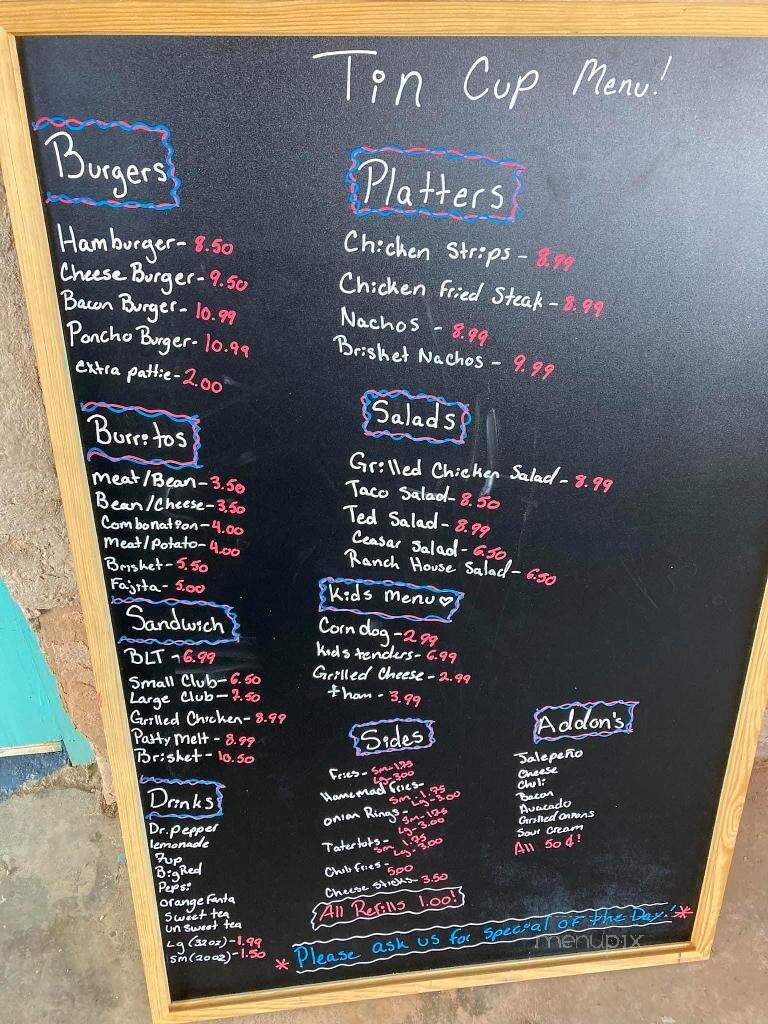 Tin Cup Menu!
Burgers
Hamburger - 8.50
Cheese Burger - 9.50
Bacon Burger - 10.99
Poncho Burger - 10.99
extra pattie - 2.00
Burritos
Meat/Bean - 3.50
Bean/Cheese - 3.50
Combonation - 4.00
Meat/potato - 4.00
Brisket - 5.50
Fajita - 5.00
Sandwich
BLT - 6.99
Small Club - 6.50
Large Club - 7.50
Grilled Chicken - 8.99
Patty Melt - 8.99
Brisket - 10.50
Drinks
Dr. Pepper
lemonade
7up
Big Red
Pepsi
Orange Fanta
Sweet tea
un sweet tea
Lg (32oz) - 1.99
Sm (20oz) - 1.50
Platters
Chicken Strips - 8.99
Chicken Fried Steak - 8.99
Nachos - 8.99
Brisket Nachos - 9.99
Salads
Grilled Chicken Salad - 8.99
Taco Salad - 8.50
Ted Salad - 8.99
Ceasar Salad - 6.50
Ranch House Salad - 6.50
Kids Menu ♡
Corn dog - 2.99
Kids tenders - 6.99
Grilled Cheese - 2.99
+ham - 3.99
Sides
Fries - Sm - 1.75
Lg - 3.00
Homemad Fries -
Sm - 1.75
Lg - 3.00
Onion Rings -
Sm - 1.75
Lg - 3.00
Tatertots - Sm 1.75
Lg - 3.00
Chub Fries - 5.00
Cheese Sticks - 3.50
All Refills 1.00!
Addon's
Jalepeño
Cheese
Chili
Bacon
Avacado
Grilled onions
Sour Cream
All 50¢!
* Please ask us for special of the Day! *
menupix